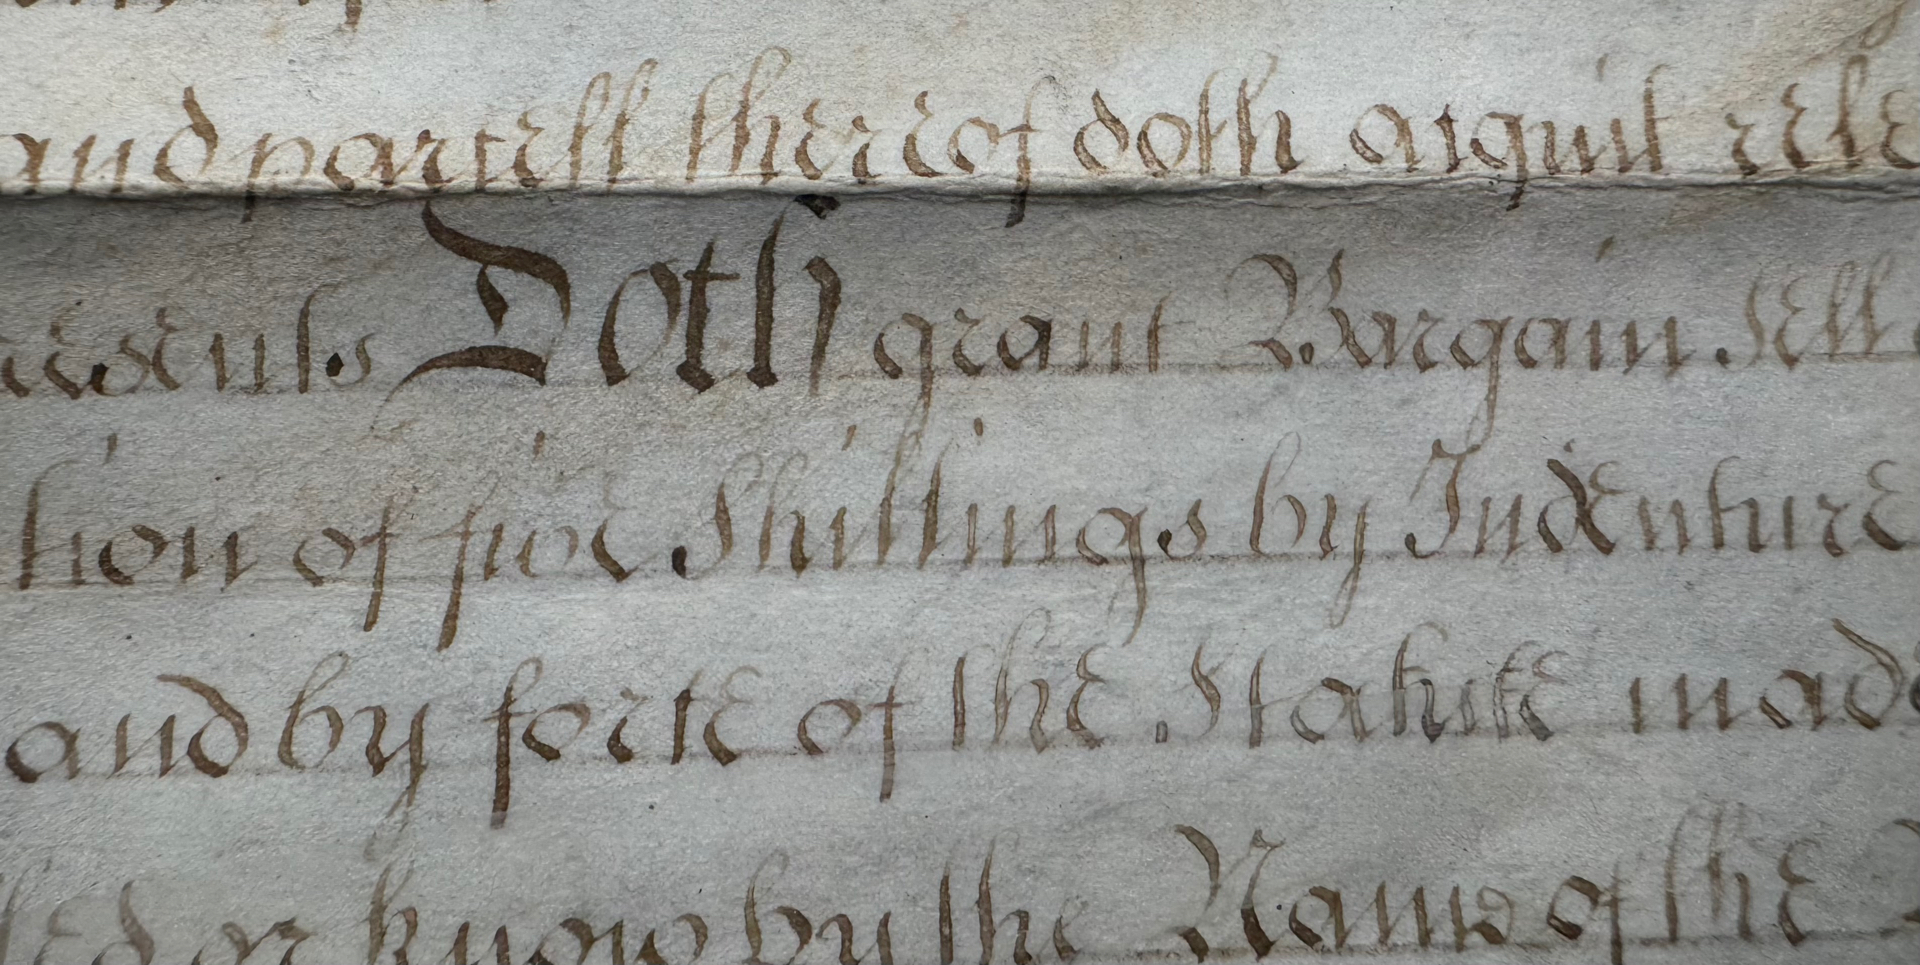 and parcell thereof doth acquit rele
resents Doth grant Bargain sell
tion of five Shillings by Indenture
and by force of the Statute made
led or know by the Name of the